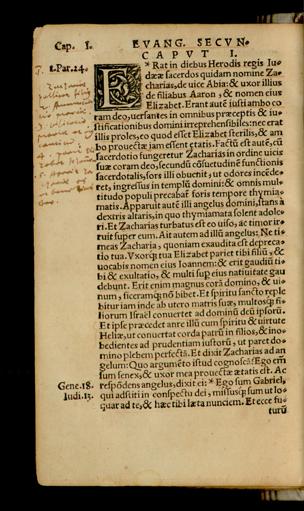 Cap. I. EVANG. SECVN-
CAPVT I.
1. Par. 24.
* ERat in diebus Herodis regis Iu-
dææ sacerdos quidam nomine Za-
charias, de uice Abia: & uxor illius
de filiabus Aaron, & nomen eius
Elizabet. Erant autē iusti ambo co
ram deo, uersantes in omnibus præceptis & iu-
stificationibus domini irreprehensibiles: nec erat
illis proles, eo quod esset Elizabet sterilis, & am
bo prouectæ iam essent ætatis. Factū est autē, cū
sacerdotio fungeretur Zacharias in ordine uicis
suæ coram deo, secundū cōsuetudinē functionis
sacerdotalis, sors illi obuenit, ut odores incēde-
ret, ingressus in templū domini: & omnis mul-
titudo populi precabat foris tempore thymia-
matis. Apparuit autē illi angelus domini, stans à
dextris altaris, in quo thymiamata solent adole-
ri. Et Zacharias turbatus est eo uiso, ac timor ir-
ruit super eum. Ait autem ad illū angelus: Ne ti-
meas Zacharia, quoniam exaudita est depreca-
tio tua. Vxorq; tua Elizabet pariet tibi filiū, &
uocabis nomen eius Ioannem: & erit gaudiū ti-
bi & exultatio, & multi sup eius natiuitate gau
debunt. Erit enim magnus corā domino, & ui-
num, siceramq; nō bibet. Et spiritu sancto reple
bitur iam inde ab utero matris suæ, multosq; fi-
liorum Israël conuertet ad dominū deū ipsorū.
Et ipse præcedet ante illū cum spiritu & uirtute
Heliæ, ut conuertat corda patrū in filios, & ino-
bedientes ad prudentiam iustorū, ut paret do-
mino plebem perfectā. Et dixit Zacharias ad an
gelum: Quo argumēto istud cognoscā? Ego em̄
sum senex, & uxor mea prouectæ ætatis est. Ac
Gene. 18. respōdens angelus, dixit ei: * Ego sum Gabriel,
Iudi. 13. qui adsisto in conspectu dei, missusq; sum ut lo-
quar ad te, & hæc tibi læta nunciem. Et ecce fu-
turū